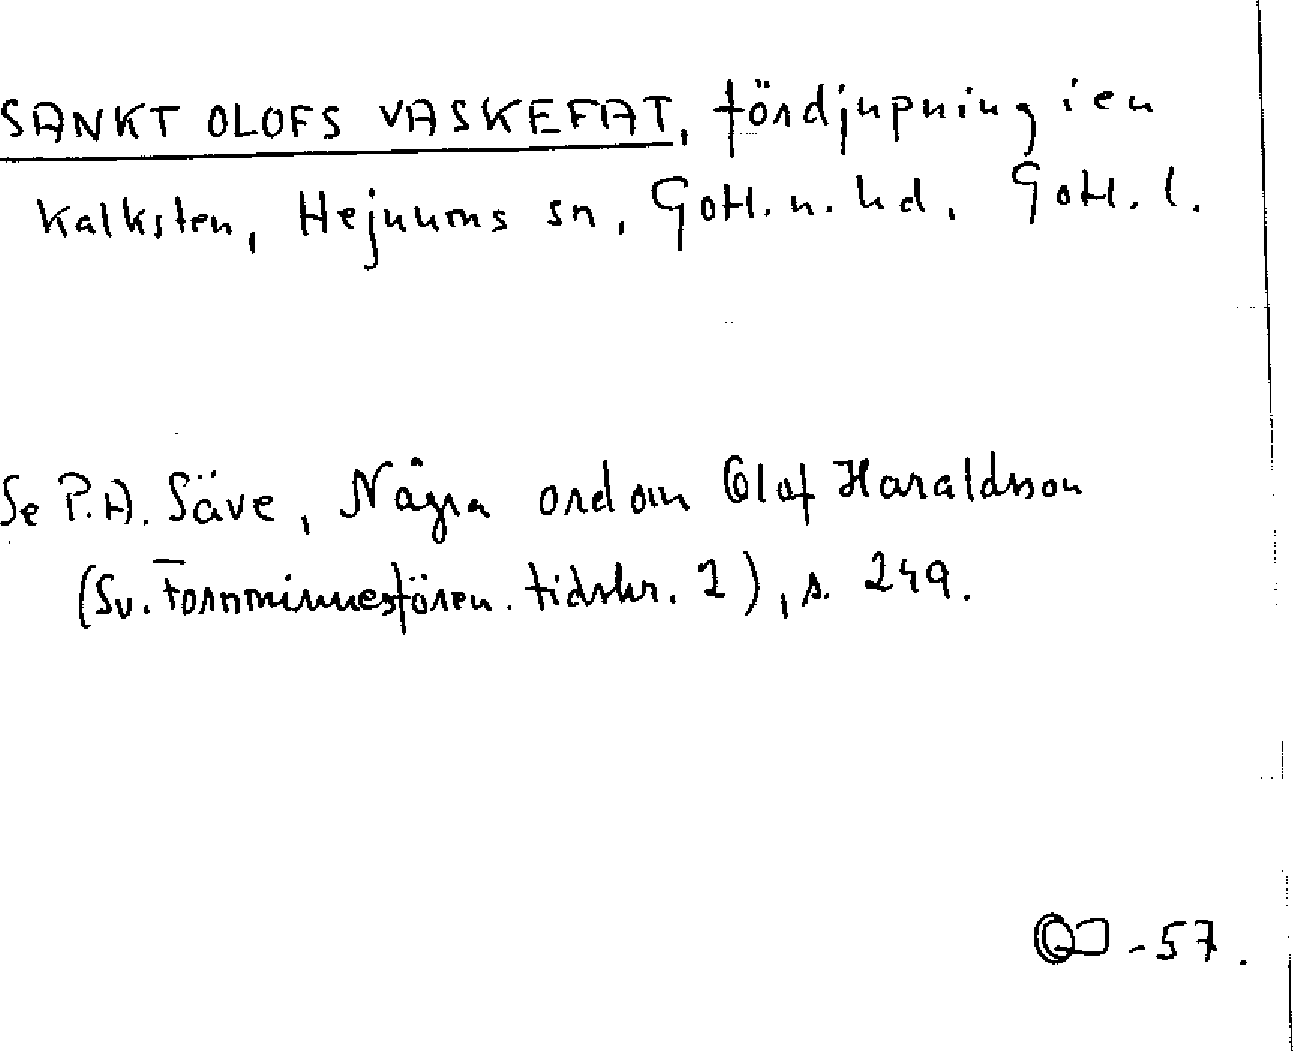 SANKT OLOFS VASKEFAT, fördjupning i en
kalksten, Hejnums sn, Gotl. n. hd, Gotl. l.
Se P.A. Säve, Några ord om Olof Haraldsson
(Sv. Fornminnesfören. tidskr. 2), s. 249.
-57.